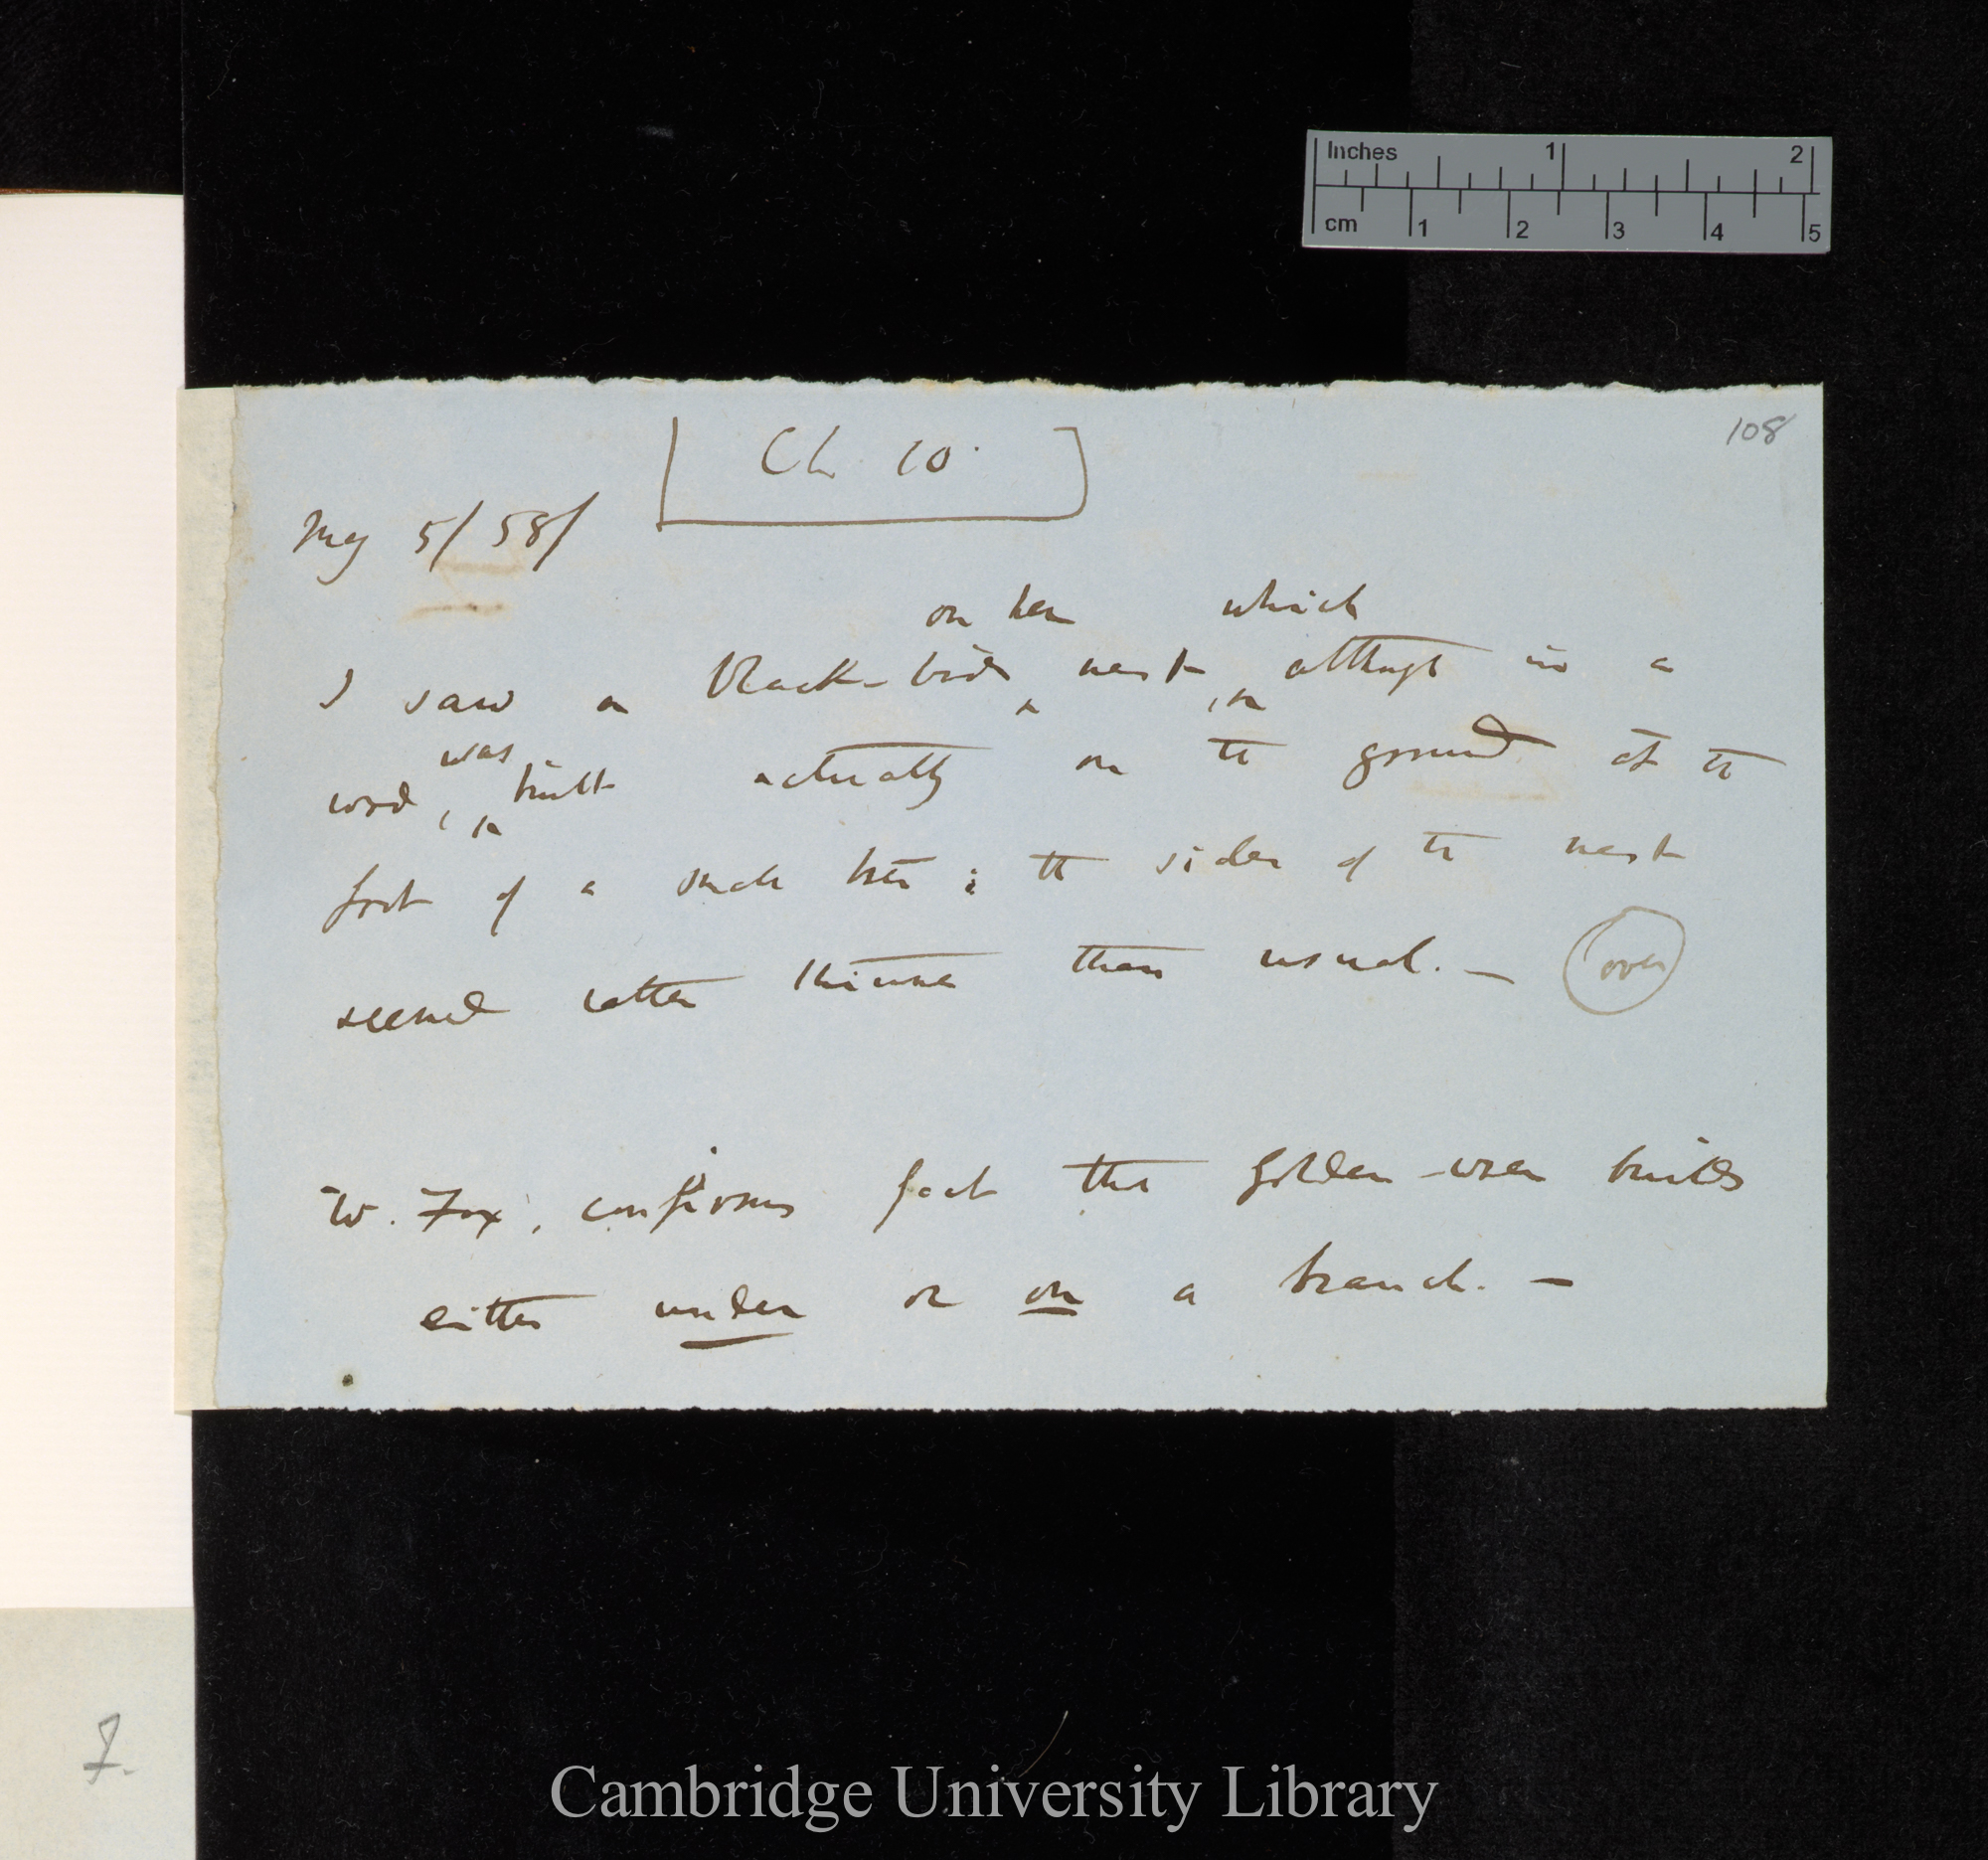 Inches 1 2
cm 1 2 3 4 5
108
Ch 10.
My 5/58/
on her which
I saw a Black-bird nest, although in a
was
wood, built actually on the ground at the
foot of a small tree; the sides of the nest
seemed rather thinner than usual. — over
W. Fox, confirms fact that golden-wren builds
either under or on a branch. —
7.
Cambridge University Library